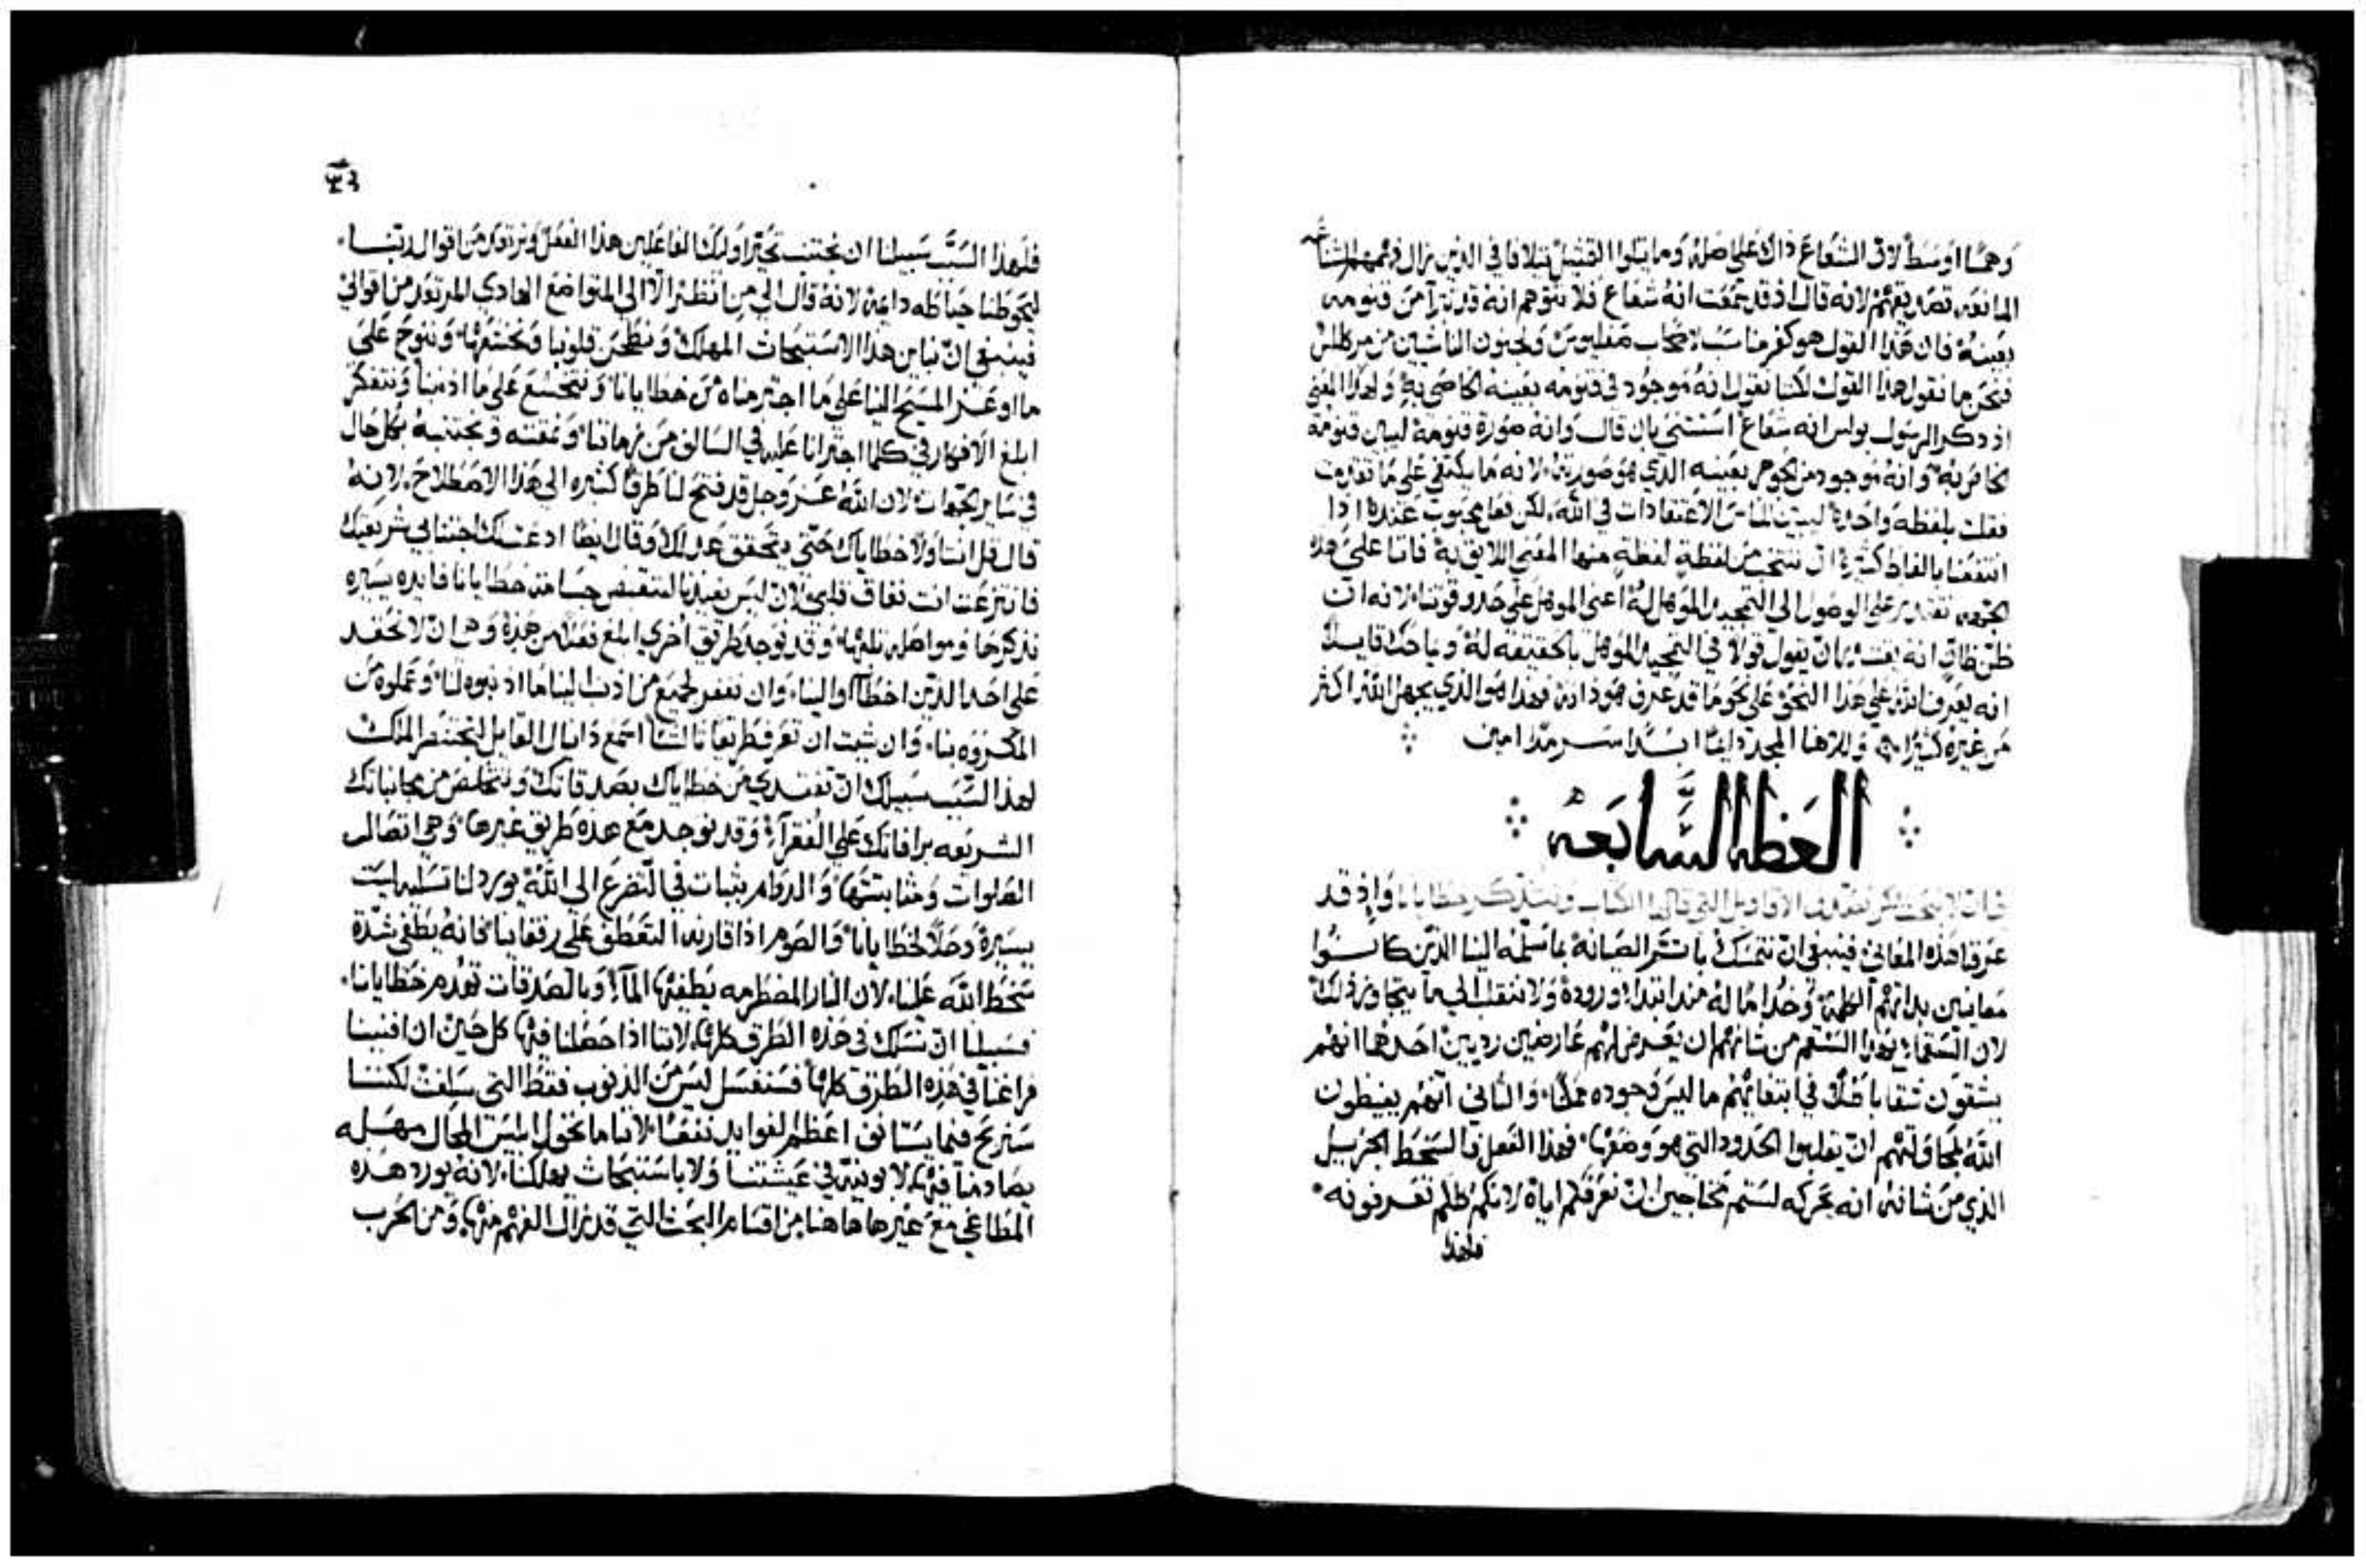 وهمًا اوسط لان الشعاع ذاك على اصله وما يتلوا القتيل يتلافا في الذين نزال فهمهم الشناعه
المانعه تصديقهم لانه قال اذ قد سمعت انه شعاع فلا تتوهم انه قد تبرآ من قنومه
بعينه فان هذا القول هو كفر مناسب لاصحاب مرقليوس ولجنون الناشيين من مركللس
فنحن ما نقول هذا القول لكننا نقول انه موجود في قنومه بعينه الخاصي به ولهذا المعنى
اذ ذكر الرسول بولس انه شعاع استثنى بان قال وانه صورة قنومه ليبين قنومه
الخاص به وانه موجود من الجوهر بعينه الذي هو صورته لانه ما يكتفي على ما تقدمت
فقلت بلفظه واحدة ليبين للناس الاعتقادات في الله، لكن فعل محبوب عندنا اذا
انتفعنا بالفاظ كثيرة ان ننتخب من لفظة لفظة منها المعنى اللايق به فاننا على هذه
الجهه نقتدر على الوصول الى التمجيد الموهل له اعني الموهل على حدود قوتنا لانه ان
ظن ظان انه يقتدر ان يقول قولًا في التمجيد الموهل بالحقيقه له ويباحث قايلًا
انه يعرف الله على هذا النحو على نحو ما قد عرف هو ذاته فهذا هو الذي يجهل الله اكثر
من غيره كثيرًا وللآهنا المجد دايمًا ابدًا سرمدًا امين
العظه السابعه
وان لا نبحث عن تقدير الاقاويل التي قالها الكتاب ونتذكر خطايانا واذ قد
عرفنا هذه المعاني فينبغي ان نتمسك باستر الصيانه بما سلمه الينا الذين كانوا
معاينين بذاتهم الكلمه وخداما له منذ ابتداء وروده ولا ننتقل الى ما يتجاوز ذلك
لان السقماء بهذا السقم من شانهم ان يعرض لهم عارضين رديين احدهما انهم
يشقون شقا باطلا في ابتغايهم ما ليس وجوده ممكنًا، والثاني انهم يغيظون
الله لمحاولتهم ان يقلبوا الحدود التي هو وضعها، فهذا الفعل فالسخط الجزيل
الذي من شانه انه يحركه لستم محتاجين ان نعرفكم اياه لانكم كلكم تعرفونه
فلهذا
٣٦
فلهذا السبب سبيلنا ان نجتنب تحير اوليك الفاعلين هذا الفعل ونرتعد من اقوال ربنا،
ليحوطنا حياطه دايمه لانه قال الى من انظر الا الى المتواضع الهادي المرتعد من اقوالي
فينبغي ان نباين هذا الاستبحاث المهلك ونطحن قلوبنا ونخشعها، وننوح على
ما اوعز المسيح الينا على ما اجترمناه من خطايانا ونتخشع على ما اذنبنا ونتفكر
ابلغ الافكار في كلما اجترانا عليه في السالف من زماننا ونمقته ونجتنبه بكل حال
في ساير الجهات لان الله عز وجل قد فتح لنا طرقًا كثيره الى هذا الاصطلاح، لانه
قال قل انت اولًا خطاياك حتى يتحقق عدلك وقال ايضًا
فانتزعت انت نفاق قلبي لان ليس يفيدنا لتنقيص جسامة خطايانا فايده يسيره
تذكرها ومواصلة تلفها، وقد توجد طريق اخرى ابلغ فعلًا من هذه وهي ان لا نحقد
على احد الذين اخطآوا الينا، وان نغفر لجميع من اذنب الينا ما اذنبوه لنا وعملوه من
المكروه بنا، وان شيت ان تعرف طريقًا ثالثا اسمع دانيال القايل لبختنصر الملك
لهذا السبب سبيلك ان تفتدي من خطاياك بصدقاتك وتتخلص من مجانباتك
الشريعه برافاتك على الفقرآء، وقد توجد مع هذه طريق غيرها وهي اتصال
الصلوات ومثابتتها والدوام بثبات في التضرع الى الله يورد لنا تسليه ليست
يسيرة وحلًا لخطايانا، والصوم اذا قارنه التعطف على رفقاينا فانه يطفي شدة
سخط الله علينا، لان النار المضطرمه يطفيها المآء، وبالصدقات تهدم خطايانا،
فسبيلنا ان نسلك في هذه الطرق كلها، لاننا اذا حصلنا فيها كل حين ان افنينا
فراغنا في هذه الطرق كلها فسنغسل ليس من الذنوب فقط التي سلفت لكننا
سنربح فيما يستانف اعظم الفوايد نفعًا، لاننا ما نخول ابليس المحال مهله
يصادفنا فيها، لا بونية في عيشتنا ولا باستبحاث يهلكنا، لانه يورد هذه
المطاغي مع غيرها هاهنا من اقسام البحث التي قد نزال الفهم منها، ومن الحرب